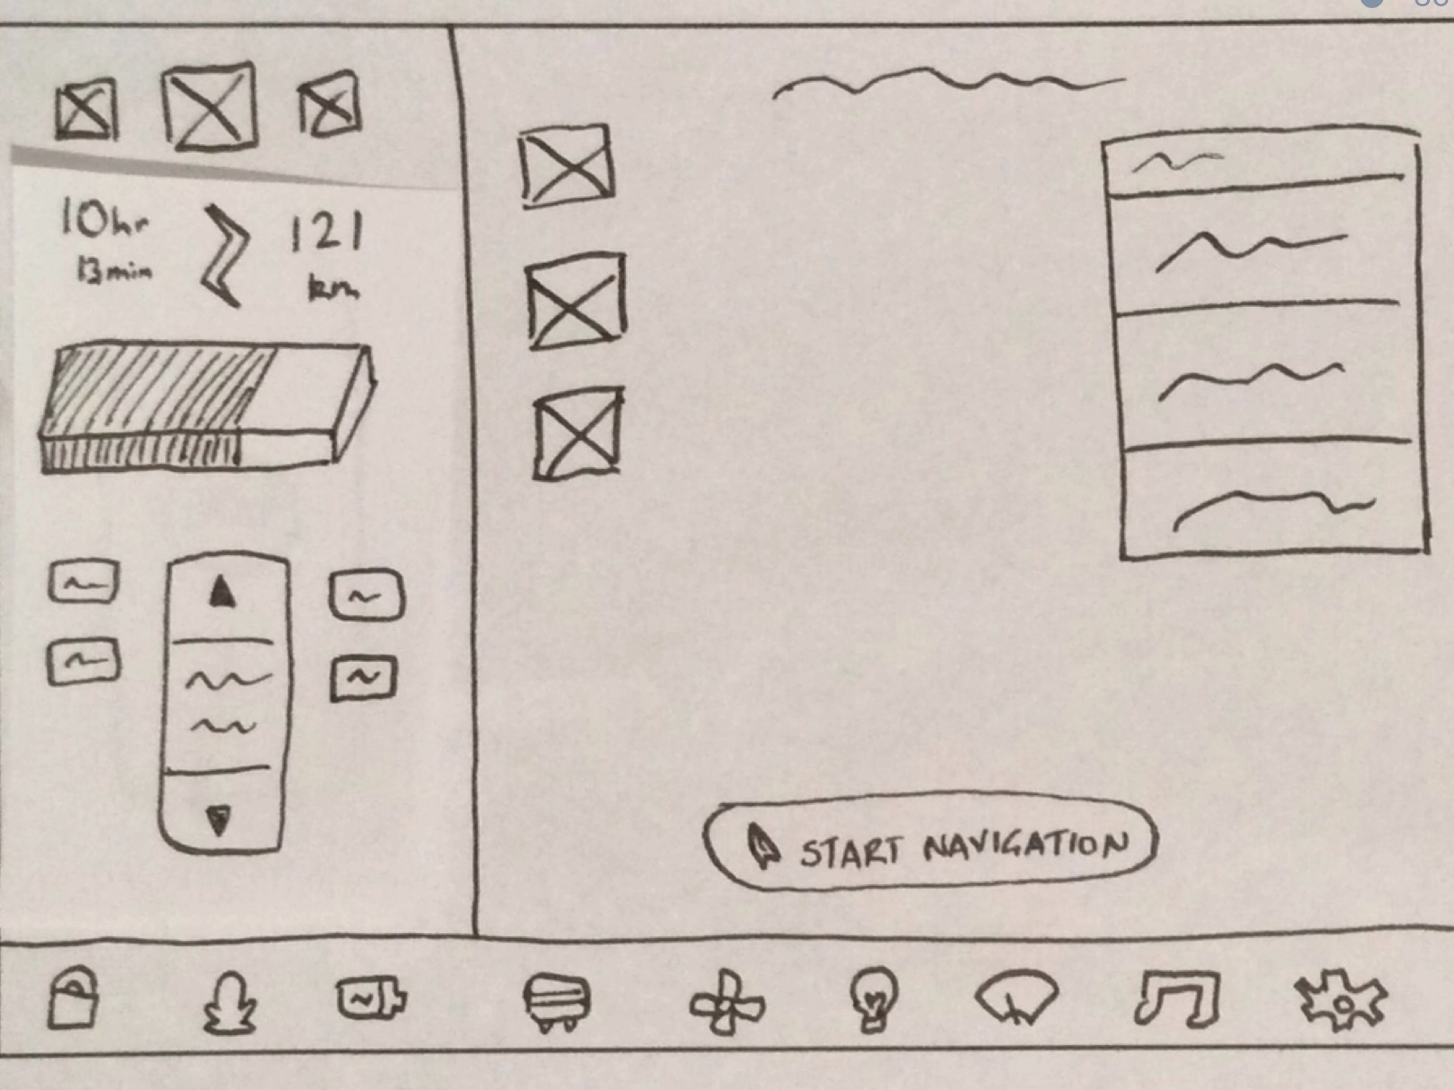 10hr
13min
121
km
START NAVIGATION